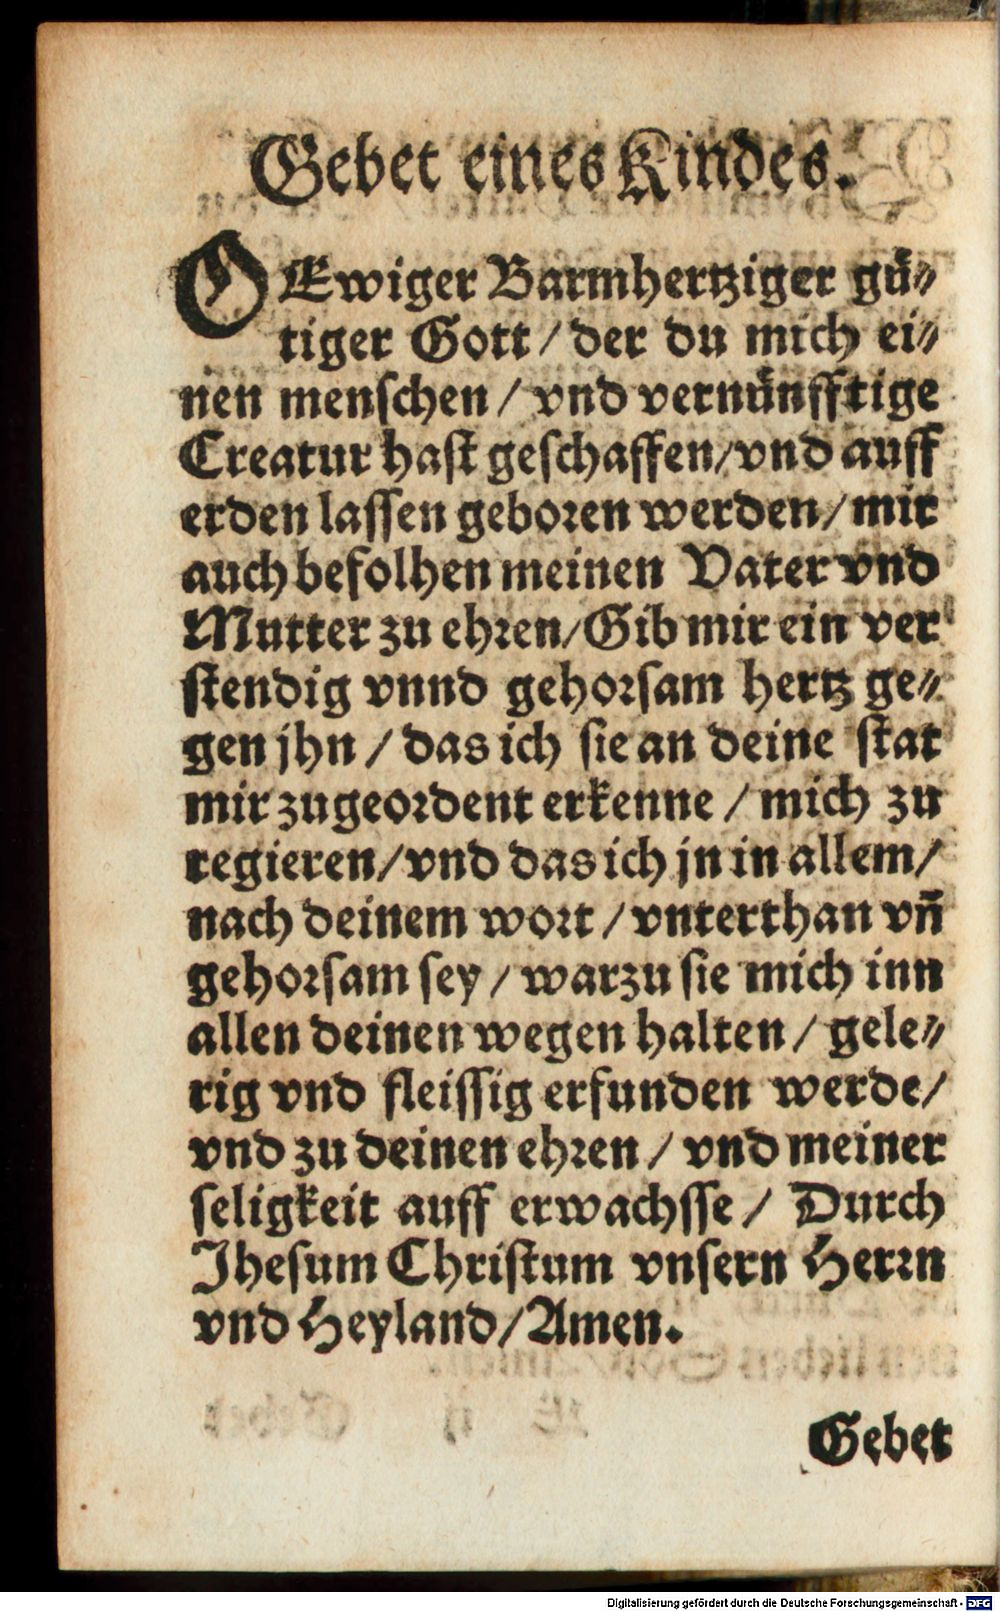 Gebet eines Kindes.
O Ewiger Barmhertziger gü⸗
tiger Gott / der du mich ei⸗
nen menschen / vnd vernünfftige
Creatur hast geschaffen / vnd auff
erden lassen geboren werden / mir
auch befolhen meinen Vater vnd
Mutter zu ehren / Gib mir ein ver
stendig vnnd gehorsam hertz ge⸗
gen jhn / das ich sie an deine stat
mir zugeordent erkenne / mich zu
regieren / vnd das ich jn in allem /
nach deinem wort / vnterthan vn̄
gehorsam sey / warzu sie mich inn
allen deinen wegen halten / gele⸗
rig vnd fleissig erfunden werde /
vnd zu deinen ehren / vnd meiner
seligkeit auff erwachsse / Durch
Jhesum Christum vnsern Herrn
vnd Heyland / Amen.
Gebet
Digitalisierung gefördert durch die Deutsche Forschungsgemeinschaft - DFG